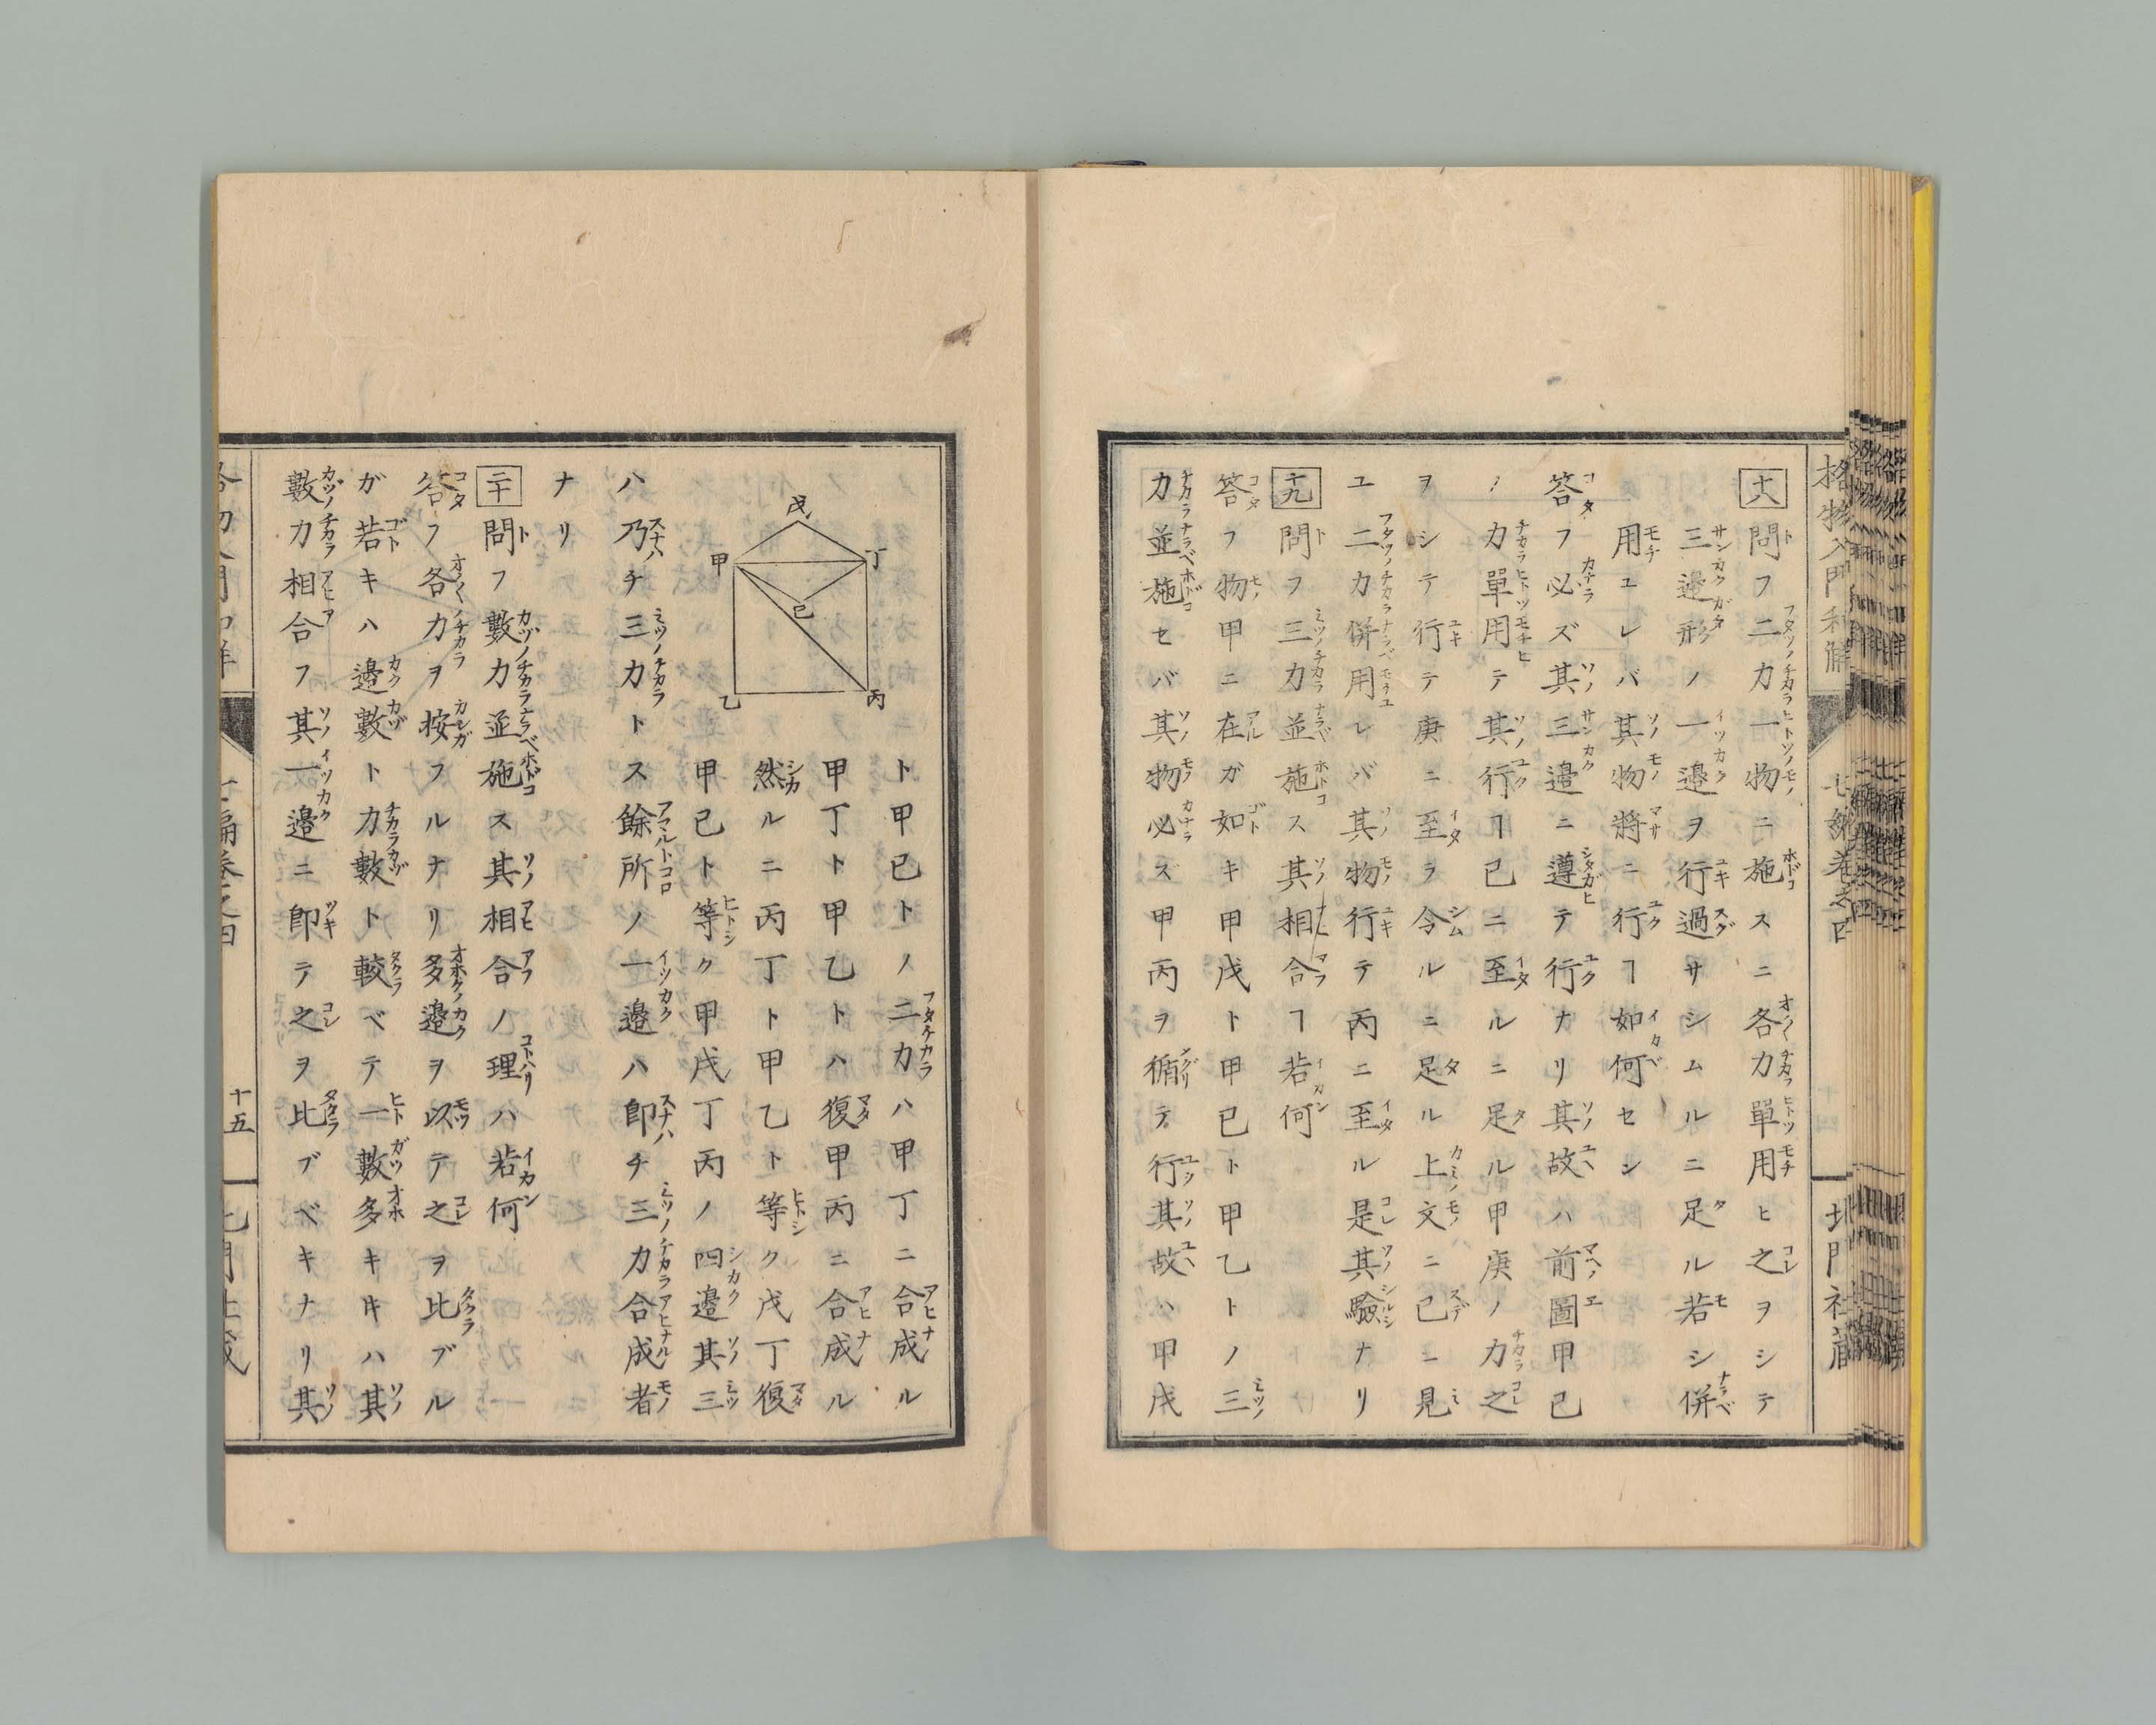 格物入門和解
七編巻之四
北門社蔵
十八 問フ二力一物ニ施スニ各力單用ヒ之ヲシテ
三邉形ノ一邉ヲ行過サシムルニ足ル若シ併
用ユレバ其物將ニ行ヿ如何セシ
答フ必ズ其三邉ニ遵テ行ナリ其故ハ前圖甲己
ノ力單用テ其行ヿ已ニ至ルニ足ル甲庚ノ力之
ヲシテ行テ庚ニ至ラ令ルニ足ル上文ニ已ニ見
ユ二力併用レバ其物行テ丙ニ至ル是其驗ナリ
十九 問フ三力並施ス其相合ヿ若何
答フ物甲ニ在ガ如キ甲戊ト甲己ト甲乙トノ三
力並施セバ其物必ズ甲丙ヲ循テ行其故ハ甲戊
ト甲己トノ二力ハ甲丁ニ合成ル
甲丁ト甲乙トハ復甲丙ニ合成ル
然ルニ丙丁ト甲乙ト等ク戊丁復
甲己ト等ク甲戊丁丙ノ四邉其三
戊
丁
甲
己
乙
丙
ハ乃チ三力トス餘所ノ一邉ハ即チ三力合成者
ナリ
二十 問フ數力並施ス其相合ノ理ハ若何
答フ各力ヲ按フルナリ多邉ヲ以テ之ヲ比ブル
ガ若キハ邉數ト力數ト較ベテ一數多キキハ其
數力相合フ其一邉ニ即テ之ヲ比ブベキナリ其
十五